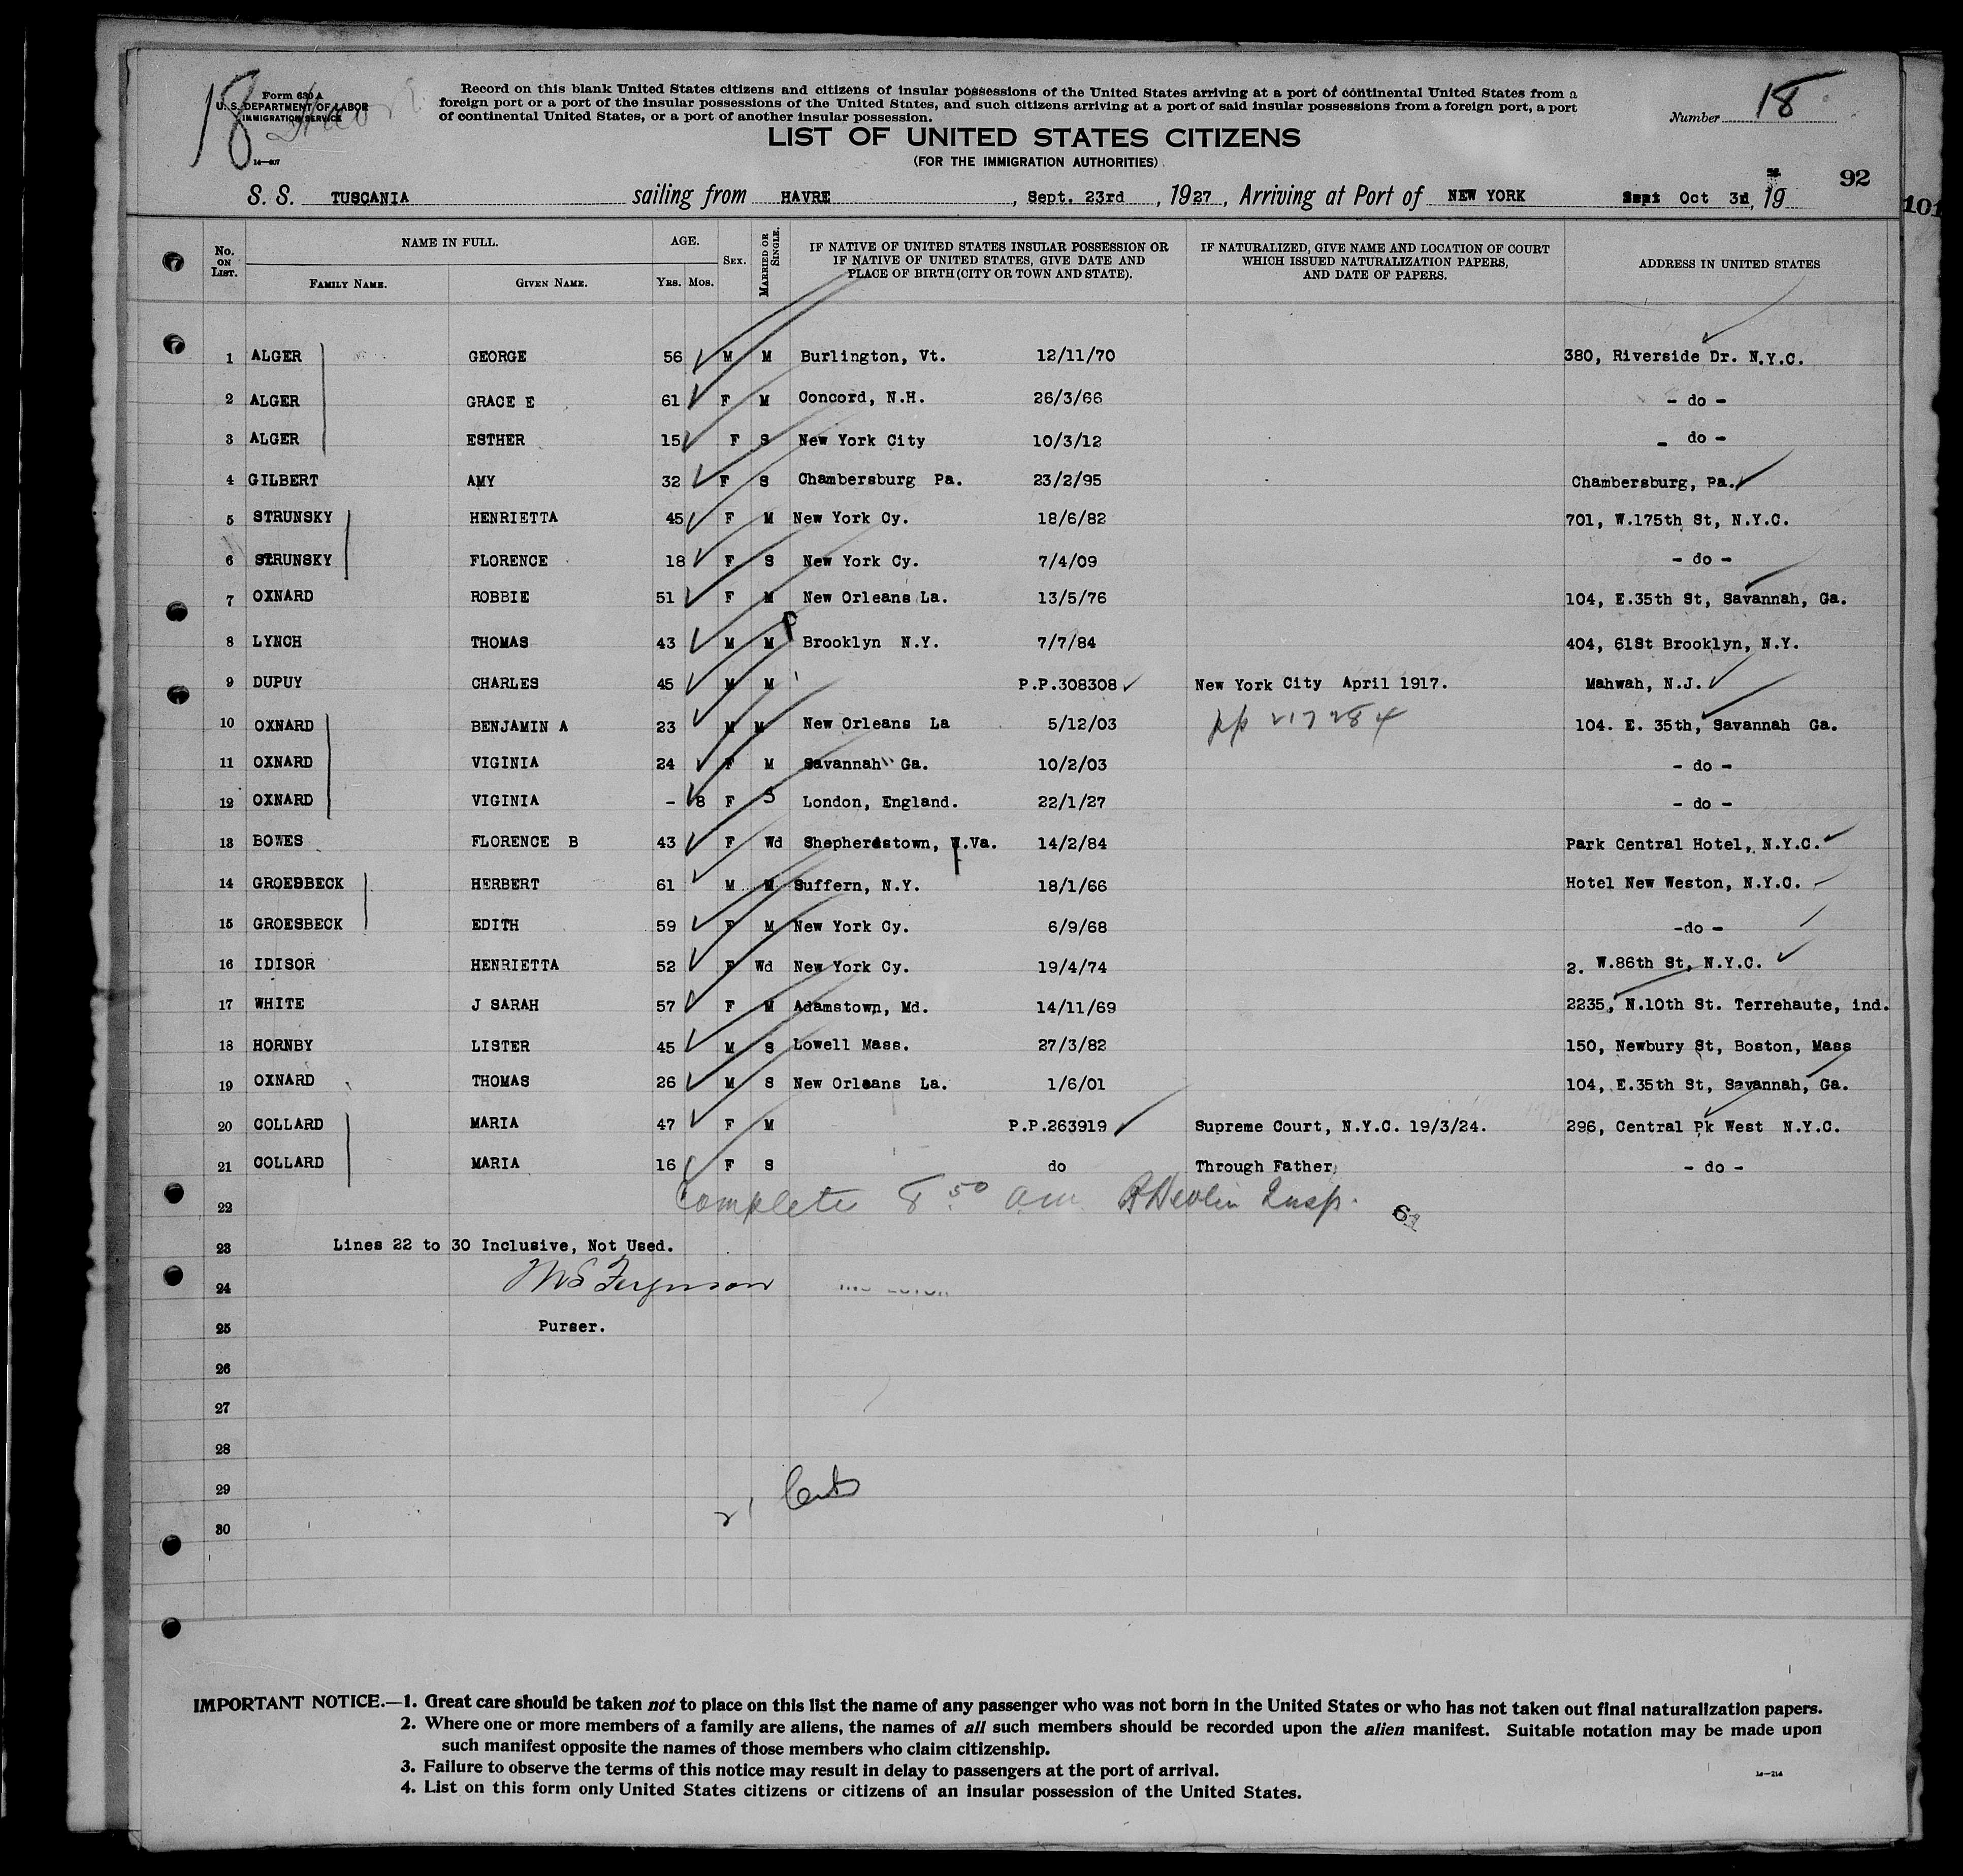 18
Form 630 A
U. S. DEPARTMENT OF LABOR
IMMIGRATION SERVICE
14—607
Record on this blank United States citizens and citizens of insular possessions of the United States arriving at a port of continental United States from a
foreign port or a port of the insular possessions of the United States, and such citizens arriving at a port of said insular possessions from a foreign port, a port
of continental United States, or a port of another insular possession.
Number 18
LIST OF UNITED STATES CITIZENS
(FOR THE IMMIGRATION AUTHORITIES)
92
101
S. S. TUSCANIA sailing from HAVRE, Sept. 23rd, 1927, Arriving at Port of NEW YORK Oct 3d, 19
No. ON LIST. NAME IN FULL. FAMILY NAME. GIVEN NAME. AGE. YRS. MOS. SEX. MARRIED OR SINGLE. IF NATIVE OF UNITED STATES INSULAR POSSESSION OR IF NATIVE OF UNITED STATES, GIVE DATE AND PLACE OF BIRTH (CITY OR TOWN AND STATE). IF NATURALIZED, GIVE NAME AND LOCATION OF COURT WHICH ISSUED NATURALIZATION PAPERS, AND DATE OF PAPERS. ADDRESS IN UNITED STATES
1 ALGER GEORGE 56 M M Burlington, Vt. 12/11/70 380, Riverside Dr. N.Y.C.
2 ALGER GRACE E 61 F M Concord, N.H. 26/3/66 - do -
3 ALGER ESTHER 15 F S New York City 10/3/12 - do -
4 GILBERT AMY 32 F S Chambersburg Pa. 23/2/95 Chambersburg, Pa.
5 STRUNSKY HENRIETTA 45 F M New York Cy. 18/6/82 701, W.175th St, N.Y.C.
6 STRUNSKY FLORENCE 18 F S New York Cy. 7/4/09 - do -
7 OXNARD ROBBIE 51 F M New Orleans La. 13/5/76 104, E.35th St, Savannah, Ga.
8 LYNCH THOMAS 43 M M Brooklyn N.Y. 7/7/84 404, 61St Brooklyn, N.Y.
9 DUPUY CHARLES 45 M M P.P.308308 New York City April 1917. Mahwah, N.J.
10 OXNARD BENJAMIN A 23 M M New Orleans La 5/12/03 pp 217284 104. E. 35th, Savannah Ga.
11 OXNARD VIGINIA 24 F M Savannah Ga. 10/2/03 - do -
12 OXNARD VIGINIA - 8 F S London, England. 22/1/27 - do -
13 BOWES FLORENCE B 43 F Wd Shepherdstown, W.Va. 14/2/84 Park Central Hotel, N.Y.C.
14 GROESBECK HERBERT 61 M M Suffern, N.Y. 18/1/66 Hotel New Weston, N.Y.C.
15 GROESBECK EDITH 59 F M New York Cy. 6/9/68 -do -
16 IDISOR HENRIETTA 52 F Wd New York Cy. 19/4/74 2. W.86th St, N.Y.C.
17 WHITE J SARAH 57 F M Adamstown, Md. 14/11/69 2235, N.10th St. Terrehaute, ind.
18 HORNBY LISTER 45 M S Lowell Mass. 27/3/82 150, Newbury St, Boston, Mass
19 OXNARD THOMAS 26 M S New Orleans La. 1/6/01 104, E.35th St, Savannah, Ga.
20 COLLARD MARIA 47 F M P.P.263919 Supreme Court, N.Y.C. 19/3/24. 296, Central Pk West N.Y.C.
21 COLLARD MARIA 16 F S do Through Father - do -
22 Complete 8 50 am Insp.
23 Lines 22 to 30 Inclusive, Not Used.
24 Ferguson
25 Purser.
26
27
28
29
30
IMPORTANT NOTICE.—1. Great care should be taken not to place on this list the name of any passenger who was not born in the United States or who has not taken out final naturalization papers.
2. Where one or more members of a family are aliens, the names of all such members should be recorded upon the alien manifest. Suitable notation may be made upon
such manifest opposite the names of those members who claim citizenship.
3. Failure to observe the terms of this notice may result in delay to passengers at the port of arrival.
4. List on this form only United States citizens or citizens of an insular possession of the United States.
14—214